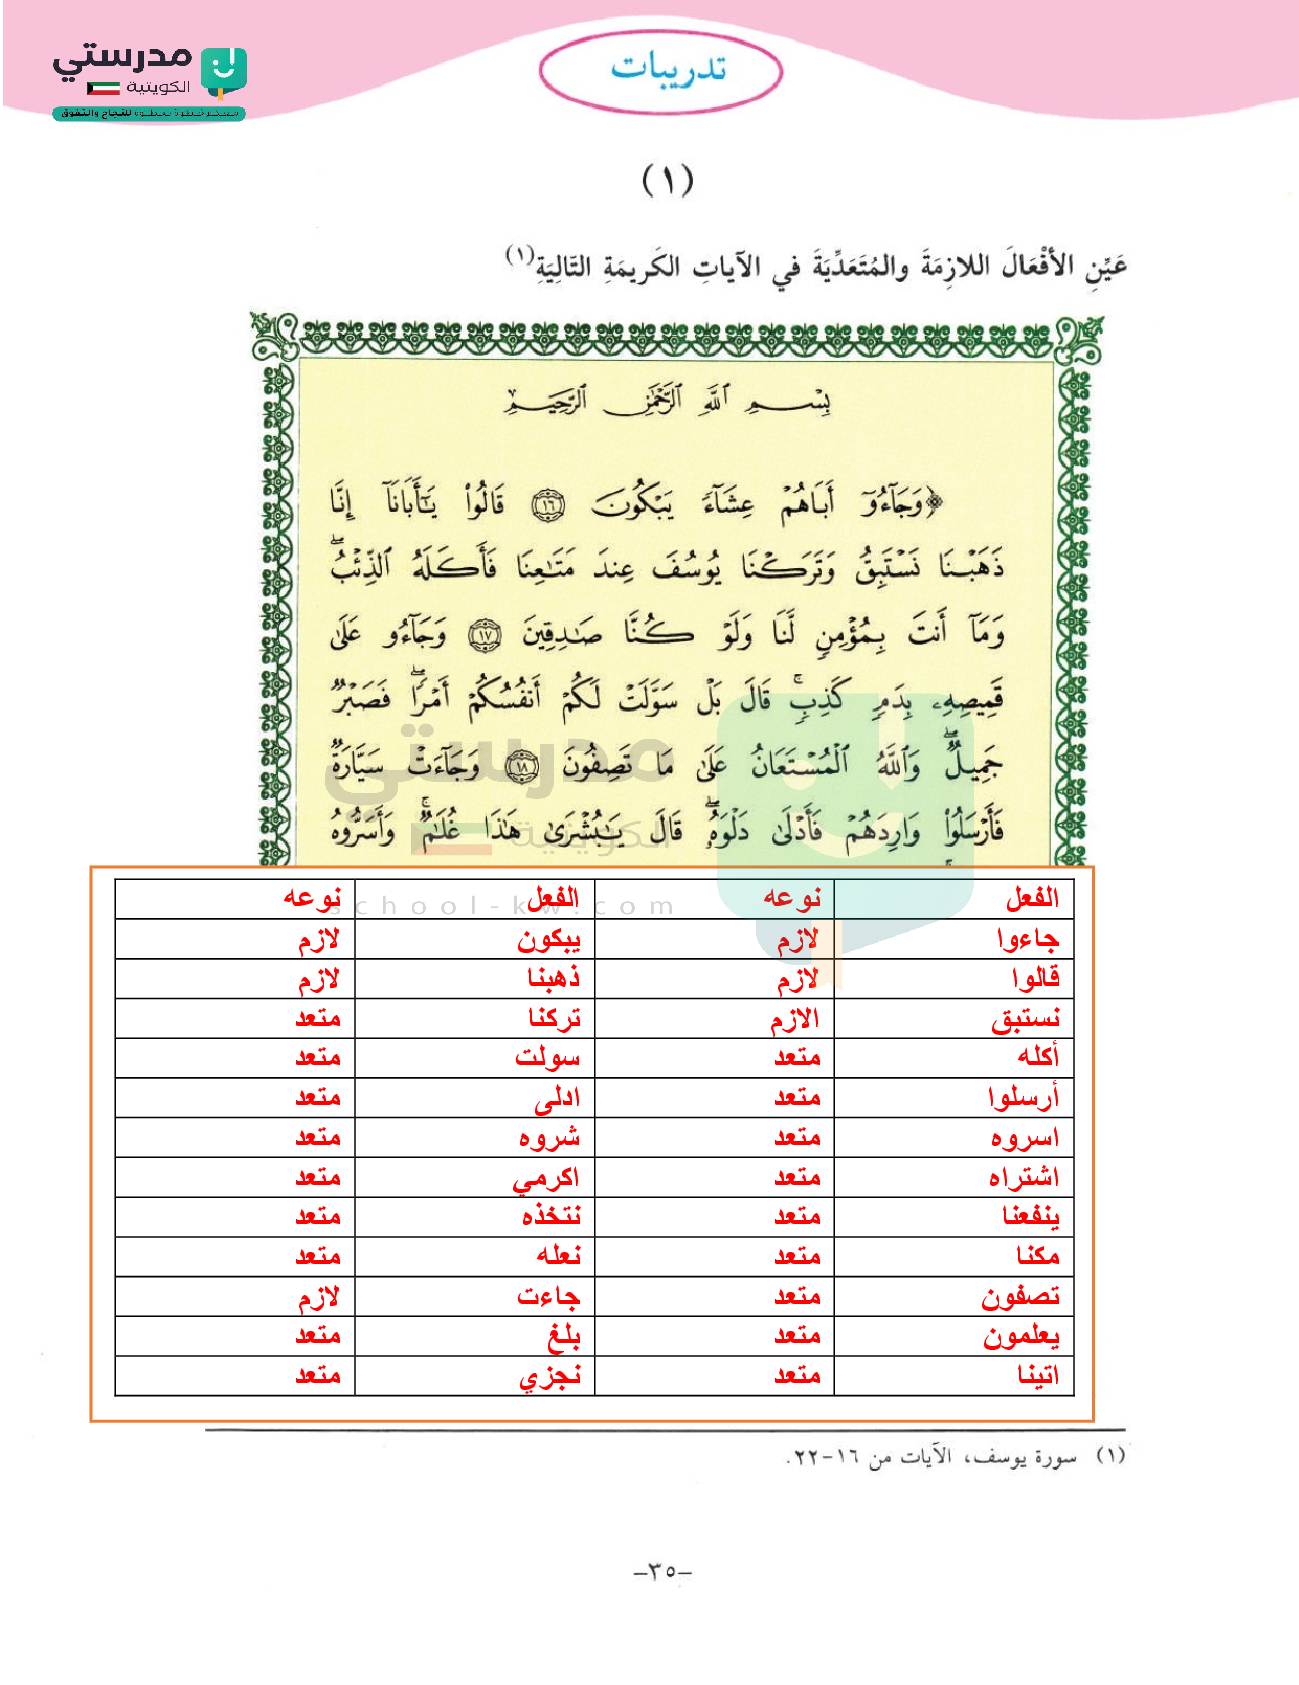 مدرستي
الكويتية
معكم خطوة بخطوة للنجاح والتفوق
تدريبات
(١)
عَيِّنِ الأفْعَالَ اللازِمَةَ والمُتَعَدِّيَةَ في الآياتِ الكَريمَةِ التَّالِيَةِ(١)
بِسْمِ ٱللَّهِ ٱلرَّحْمَٰنِ ٱلرَّحِيمِ
﴿وَجَآءُوٓ أَبَاهُمْ عِشَآءً يَبْكُونَ ١٦ قَالُوا۟ يَٰٓأَبَانَآ إِنَّا
ذَهَبْنَا نَسْتَبِقُ وَتَرَكْنَا يُوسُفَ عِندَ مَتَٰعِنَا فَأَكَلَهُ ٱلذِّئْبُ ۖ
وَمَآ أَنتَ بِمُؤْمِنٍ لَّنَا وَلَوْ كُنَّا صَٰدِقِينَ ١٧ وَجَآءُو عَلَىٰ
قَمِيصِهِۦ بِدَمٍ كَذِبٍ ۚ قَالَ بَلْ سَوَّلَتْ لَكُمْ أَنفُسُكُمْ أَمْرًا ۖ فَصَبْرٌ
جَمِيلٌ ۖ وَٱللَّهُ ٱلْمُسْتَعَانُ عَلَىٰ مَا تَصِفُونَ ١٨ وَجَآءَتْ سَيَّارَةٌ
فَأَرْسَلُوا۟ وَارِدَهُمْ فَأَدْلَىٰ دَلْوَهُۥ ۖ قَالَ يَٰبُشْرَىٰ هَٰذَا غُلَٰمٌ ۚ وَأَسَرُّوهُ
مدرستي
الكويتية
school-kw.com
الفعل نوعه الفعل نوعه
جاءوا لازم يبكون لازم
قالوا لازم ذهبنا لازم
نستبق الازم تركنا متعد
أكله متعد سولت متعد
أرسلوا متعد ادلى متعد
اسروه متعد شروه متعد
اشتراه متعد اكرمي متعد
ينفعنا متعد نتخذه متعد
مكنا متعد نعله متعد
تصفون متعد جاءت لازم
يعلمون متعد بلغ متعد
اتينا متعد نجزي متعد
(١) سورة يوسف، الآيات من ١٦-٢٢.
-٣٥-